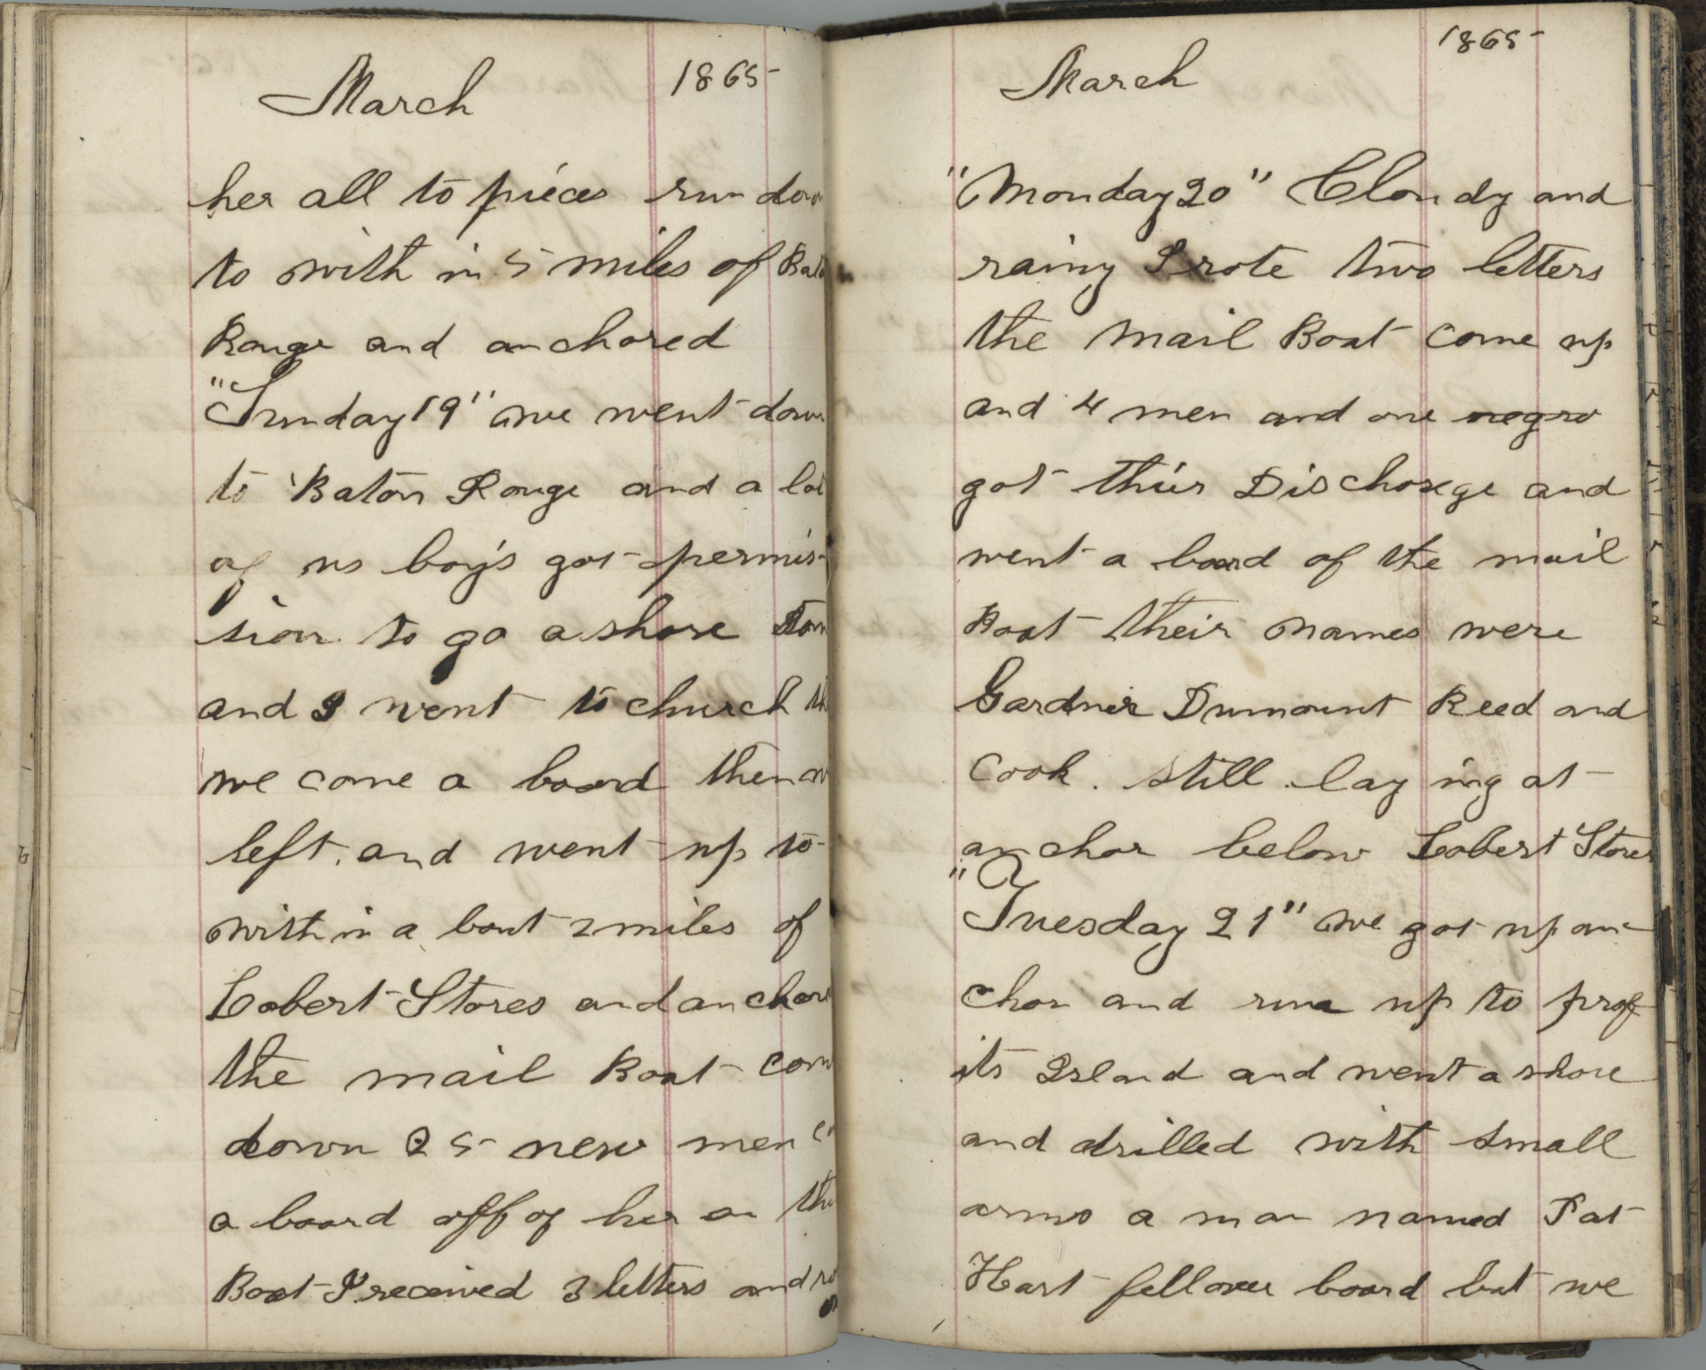 March 1865
her all to pieces run down
to with in 5 miles of Bato
Rouge and anchored
"Sunday 19" we went down
to Baton Rouge and a lot
of us boy's got permis-
sion to go a shore Tom
and I went to church th
we come a board then w
left. and went up to
with in a bout 2 miles of
Lobert Stores and anchore
the mail Boat com
down 25 new men c
a board off of her on the
Boat I received 3 letters and
March 1865
"Monday 20" Cloudy and
rainy I rote two letters
the mail Boat come up
and 4 men and one negro
got thier Discharge and
went a board of the mail
Boat their names were
Gardner Dumount Reed and
Cook. still laying at
anchor below Lobert Stores
"Tuesday 21" we got up an-
chor and run up to prof
its Island and went a shore
and drilled with small
arms a man named Pat
Hart fell over board but we